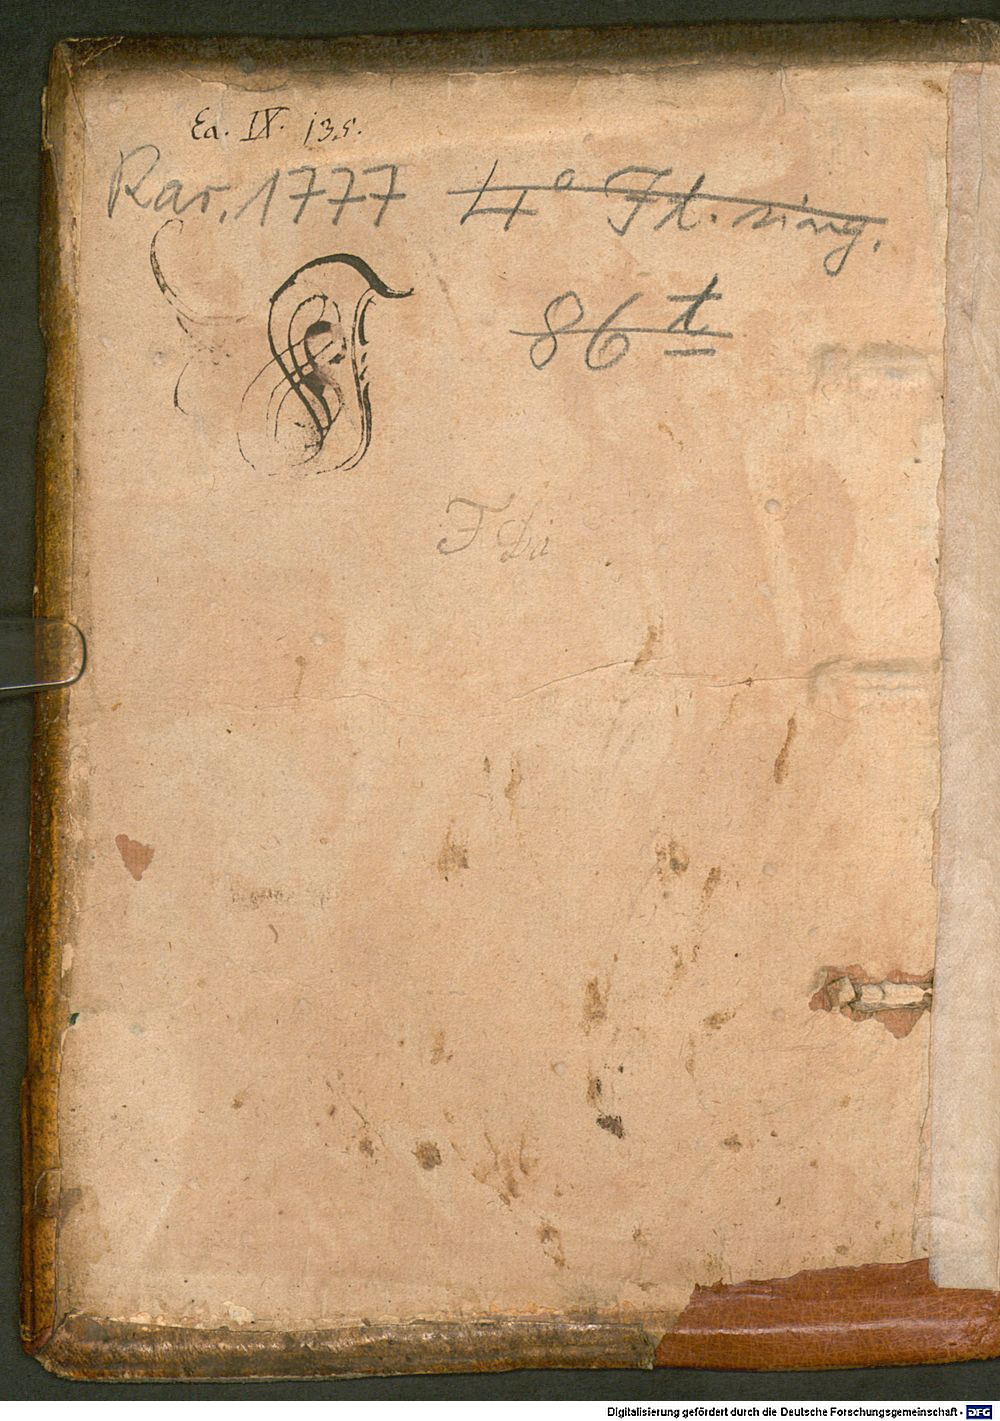 Ea. IX. 135.
Rar. 1777 4° It. sing.
86 t
F Da
Digitalisierung gefördert durch die Deutsche Forschungsgemeinschaft - DFG